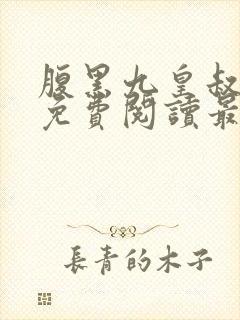 腹黑九皇叔
免費閱讀最
長青的木子